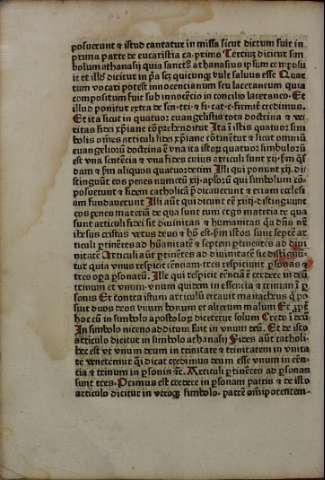 posuerunt & istud cantatur in missa sicut dictum fuit in
prima parte de eucaristia ca.primo Tercius dicitur sim
bolum athanasij quia sanctꝰ athanasius ipsum composu
it et illud dicitur in pͥa scꝫ quicunqꝫ vult saluus esse Quar
tum vocari potest innocencianum seu lateranum quia
compositum fuit sub innocencio in concilio lateranen. Et
illud ponitur extra de sum.tri. & fi.cat.c.firmiter credimus.
Et ita sicut in quatuor euangelistis tota doctrina & ve
ritas fidei xp̄iane cōprehenditur Ita ī istis quatuor sim
bolis om̄es articuli fidei xp̄iane cōtinētur & sicut omniū
euangelioꝝ doctrina ē vna ita istoꝝ quatuor simboloꝝ
est vna sentēcia & vna fides cuius articuli sunt xij. sm̄ qͦs
dam & sm̄ aliquos quatuordecim Illi qui ponunt xij. dis
tinguūt eos penes numeꝝ xij. aploꝝ qui simbolum cō
posuerunt & fidem catholicā p̄dicauerunt & eciam ecclesi
am fundauerunt Illi aūt qui dicunt eē xiiij. distinguunt
eos penes materiā de qua sunt cum ergo materia de qua
sunt articuli fidei sit diuinitas & humanitas quia dn̄s nr̄
ihesus cristus verus deus & hō est. sm̄ istos sunt septē ar
ticuli ptinētes ad hūanitatē & septem ptinentes ad diui
nitatē Articuli aūt ptinētes ad diuinitatē sic distingūn
tur quia vnus respicit eēnciam. tres respiciunt psonas &
tres opa psonaꝝ. Ille qui respicit eēnciā ē credere in deū
trinum et vnum. vnum quidem in essencia & trinum ī p
sonis Et contra istum articulū errauit manicheus qui po
suit duos deos vnum bonum et alterum malum Et ꝓpꝉ
hoc cū in simbolo apostoloꝝ diceretur solum Credo ī deū
In simbolo niceno additum fuit in vnum deū. Et de isto
articulo dicitur in simbolo athanasij Fides aūt catholi
hec est vt vnum deum in trinitate & trinitatem in vnita
te veneremur qͥ dicat credimus deum esse vnum in eēn
tia & trinum in psonis &c. Articuli ptinētes ad psonam
sunt tres. Primus est credere in psonam patris & de isto
articulo dicitur in vtroqꝫ simbolo. patrē omipotentem.